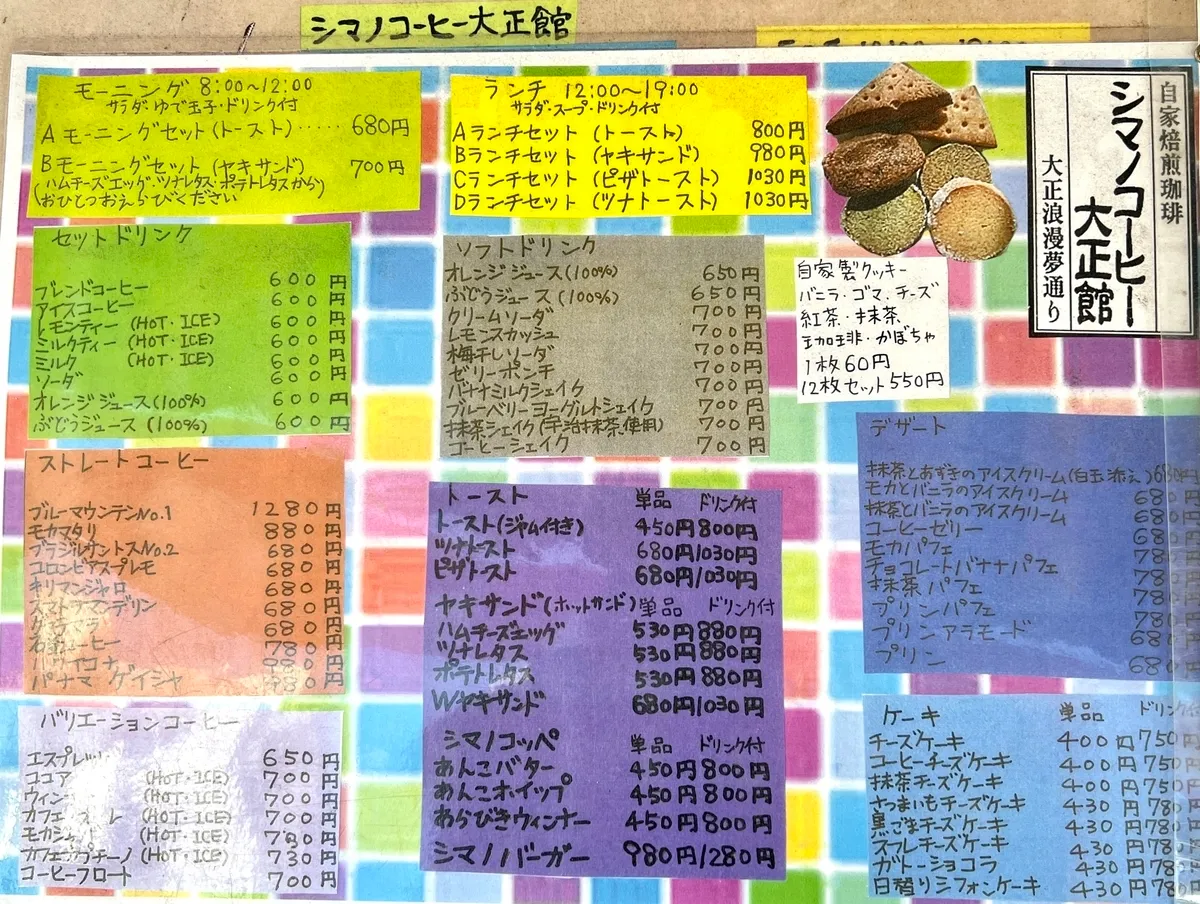 シマノコーヒー大正館
モーニング 8:00〜12:00
サラダ・ゆで玉子・ドリンク付
Aモーニングセット(トースト)‥‥‥ 680円
Bモーニングセット(ヤキサンド) 700円
(ハムチーズエッグ・ツナレタス・ポテトレタスから)
おひとつおえらびください
ランチ 12:00〜19:00
サラダ・スープ・ドリンク付
Aランチセット (トースト) 800円
Bランチセット (ヤキサンド) 980円
Cランチセット (ピザトースト) 1030円
Dランチセット (ツナトースト) 1030円
自家焙煎珈琲
シマノコーヒー
大正館
大正浪漫夢通り
セットドリンク
ブレンドコーヒー 600円
アイスコーヒー 600円
レモンティー (HOT・ICE) 600円
ミルクティー (HOT・ICE) 600円
ミルク (HOT・ICE) 600円
ソーダ 600円
オレンジジュース(100%) 600円
ぶどうジュース (100%) 600円
ソフトドリンク
オレンジジュース(100%) 650円
ぶどうジュース (100%) 650円
クリームソーダ 700円
レモンスカッシュ 700円
梅干しソーダ 700円
ゼリーポンチ 700円
バナナミルクシェイク 700円
ブルーベリーヨーグルトシェイク 700円
抹茶シェイク(宇治抹茶使用) 700円
コーヒーシェイク 700円
自家製クッキー
バニラ・ゴマ、チーズ
紅茶・抹茶
珈琲・かぼちゃ
1枚60円
12枚セット550円
ストレートコーヒー
ブルーマウンテンNo.1 1280円
モカマタリ 880円
ブラジルサントスNo.2 680円
コロンビアスプレモ 680円
キリマンジャロ 680円
スマトラマンデリン 680円
680円
コーヒー 780円
ハワイコナ 980円
パナマ ゲイシャ 円
バリエーションコーヒー
エスプレッソ 650円
ココア (HOT・ICE) 700円
ウィン (HOT・ICE) 700円
カフェ レ (HOT・ICE) 700円
モカ (HOT・ICE) 円
カフェカプチーノ (HOT・ICE) 730円
コーヒーフロート 700円
トースト 単品 ドリンク付
トースト(ジャム付き) 450円800円
ツナトースト 680円/1030円
ピザトースト 680円/1030円
ヤキサンド(ホットサンド) 単品 ドリンク付
ハムチーズエッグ 530円880円
ツナレタス 530円880円
ポテトレタス 530円880円
Wヤキサンド 680円/1030円
シマノコッペ 単品 ドリンク付
あんこバター 450円800円
あんこホイップ 450円800円
あらびきウィンナー 450円800円
シマノバーガー 980円/1280円
デザート
抹茶とあずきのアイスクリーム(白玉添え)680円
モカとバニラのアイスクリーム 680
抹茶とバニラのアイスクリーム 680
コーヒーゼリー 680
モカパフェ 780
チョコレートバナナパフェ 780
抹茶パフェ 780
プリンパフェ 780
プリンアラモード 680
プリン 680
ケーキ 単品 ドリンク
チーズケーキ 400円750
コーヒーチーズケーキ 400円750
抹茶チーズケーキ 400円750
さつまいもチーズケーキ 430円780
黒ごまチーズケーキ 430円780
スフレチーズケーキ 430円780
ガトーショコラ 430円780
日替りシフォンケーキ 430円780